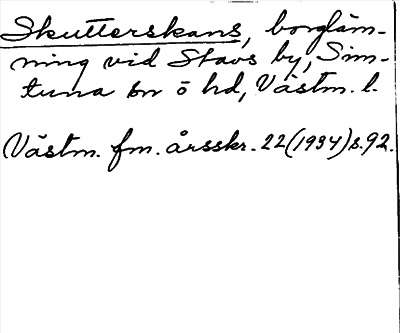 Skutterskans, borgläm-
ning vid Stavs by, Sim-
tuna sn o hd, Västm. l.
Västm. fm. årsskr. 22(1934)s.92.